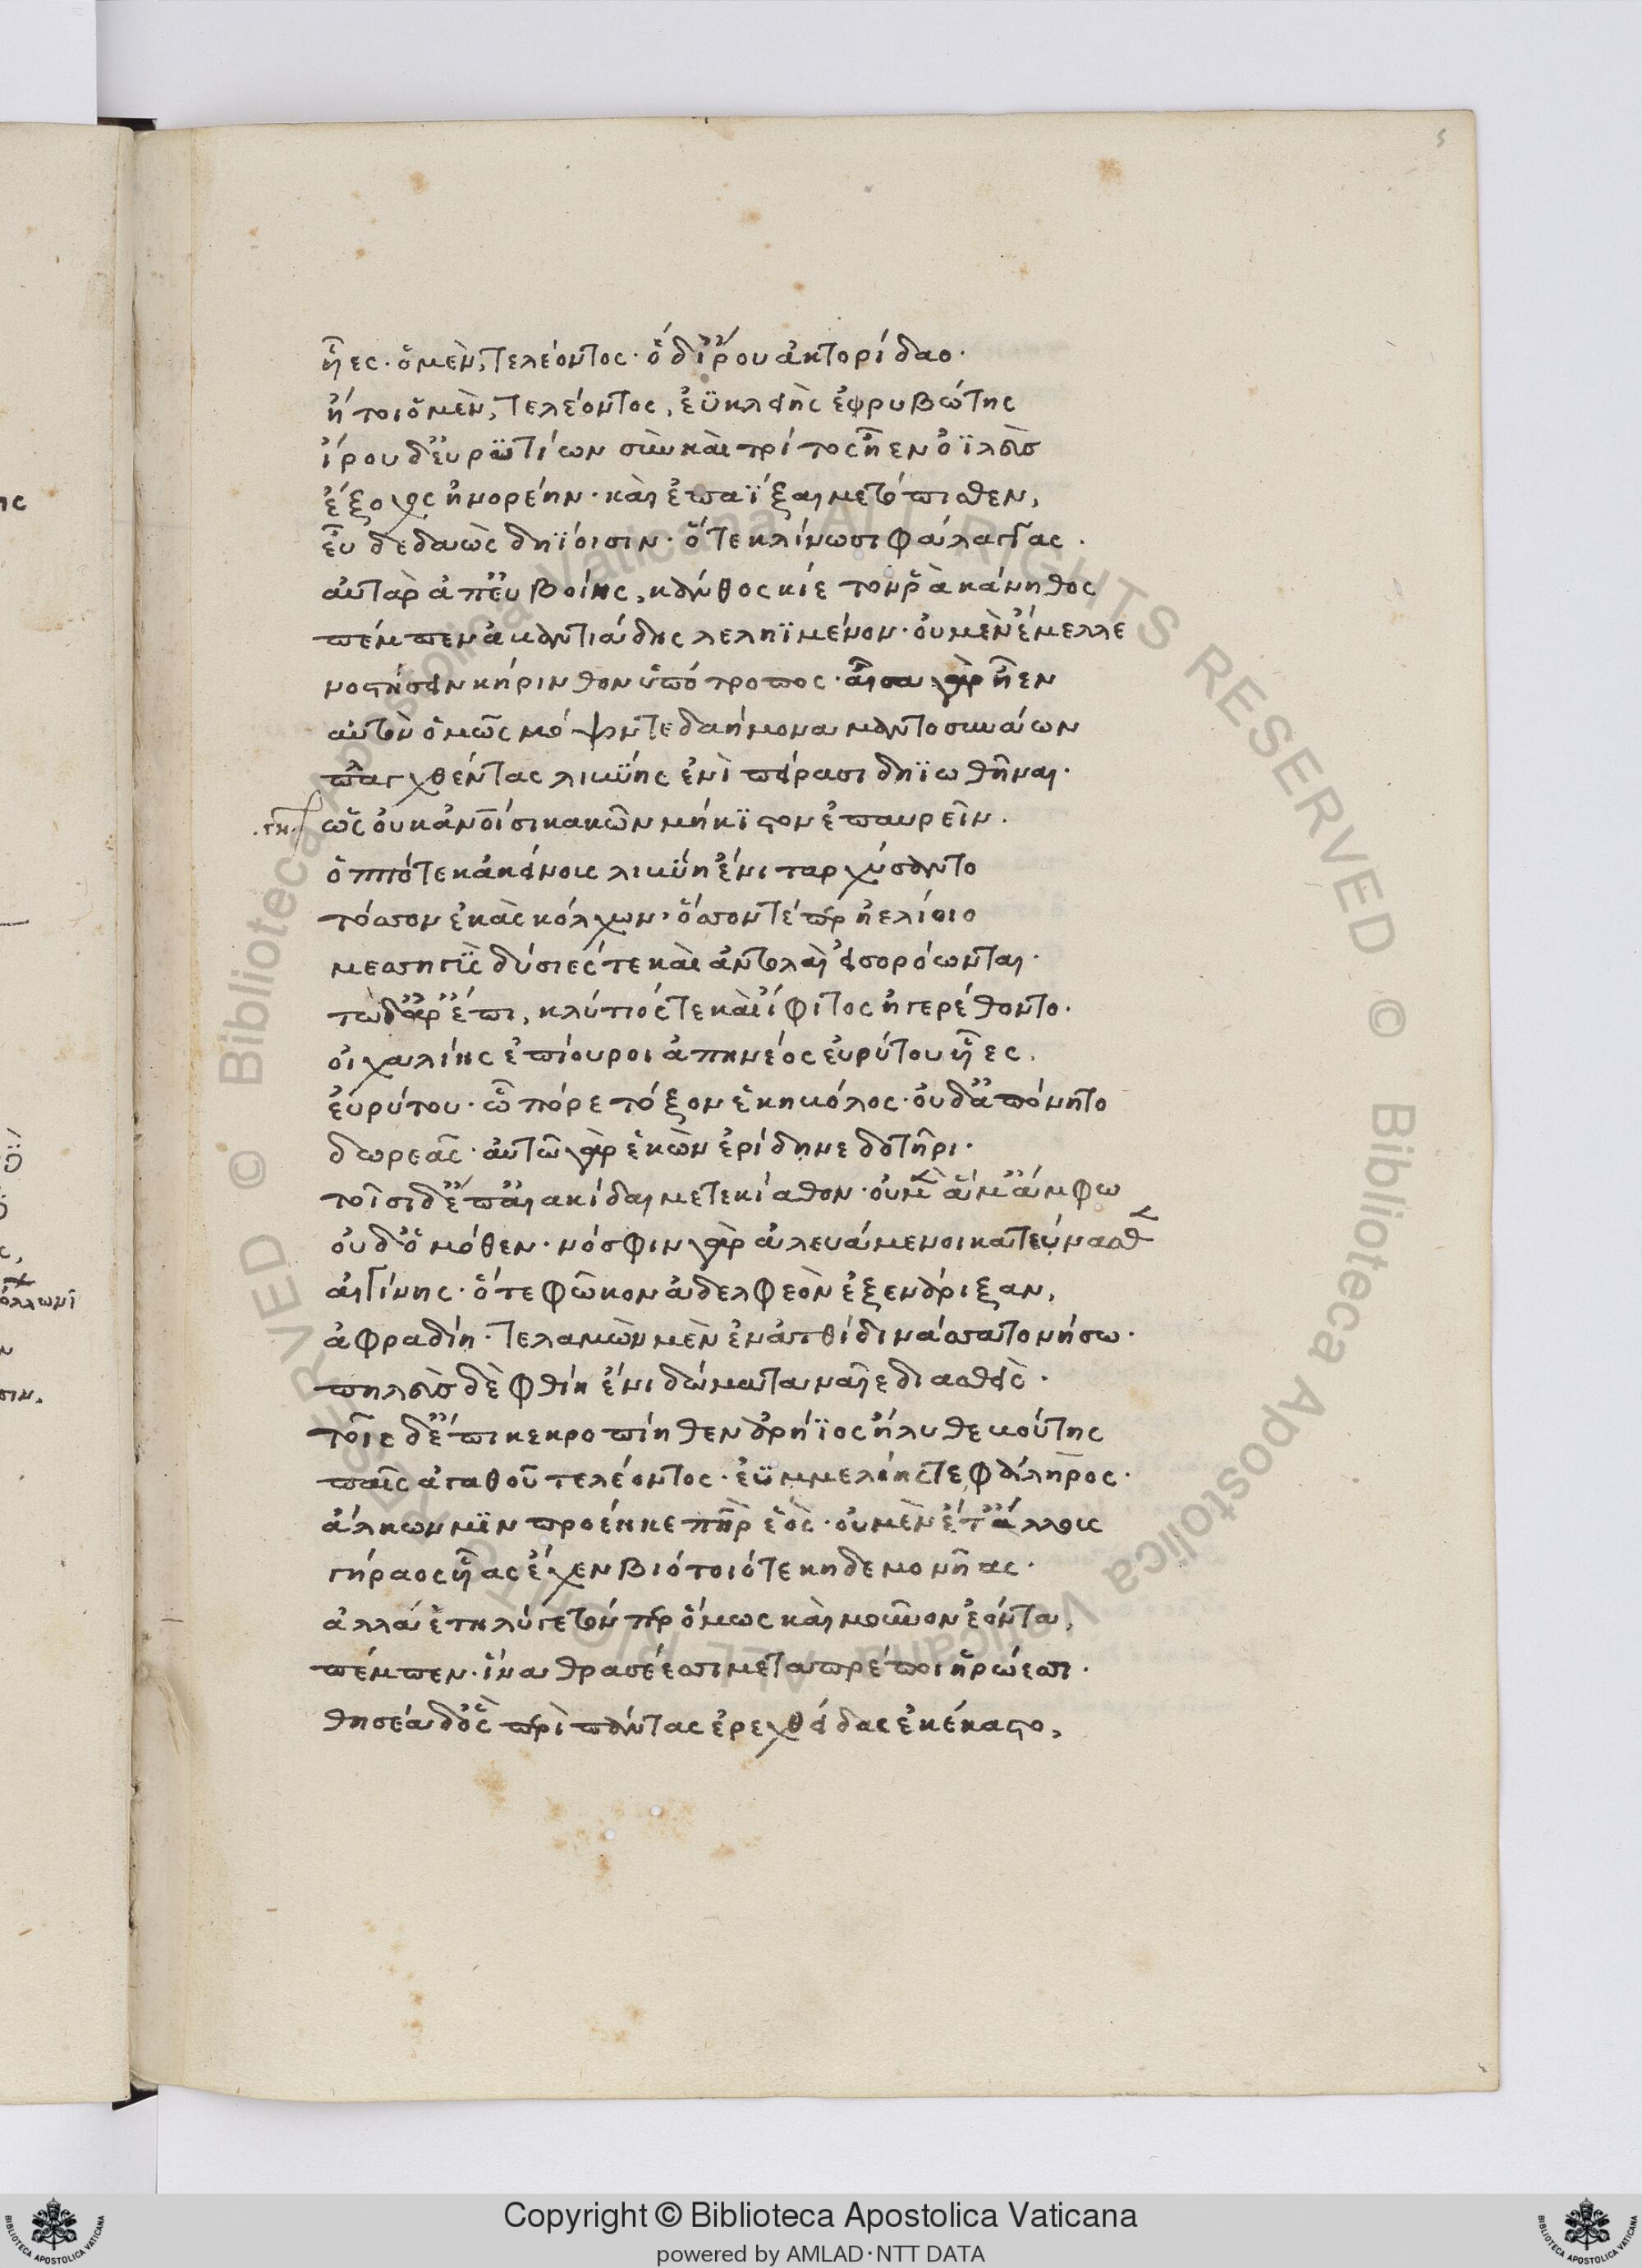 ἦες· ὁ μὲν, τελέοντος· ὁ δ' ἴρου ἀκτορίδαο·
ἤτοι ὁ μὲν, τελέοντος, ἐϋκλειὴς ἐρυβώτης
ἴρου δ' εὐρϋτίων σὺν καὶ τρίτος ἦεν ὀϊλεὺς
ἔξοχος ἠνορέην· καὶ ἐπαΐξαι μετόπισθεν,
εὖ δεδαὼς δηΐοισιν· ὅτε κλίνωσι φάλαγγας.
αὐτὰρ ἀπ' εὐβοίης, κάνθος κίε τόν ῥα κάνηθος
πέμπεν ἀκαντιάδης λελημένον· οὐ μὲν ἔμελλε
νοστήσειν κήρινθον ὑπότροπος· αἶσα γὰρ ἦεν
αὐτὸν ὁμῶς μόψον τε δαήμονα μαντοσυνάων
πλαγχθέντας λιβύης ἐνὶ πείρασι δηϊωθῆναι·
ὡς οὐκ ἀνθρώποισι κακῶν μήκιστον ἐπαυρεῖν.
ὁππότε κἀκείνους λιβύη ἔνι ταρχύσαντο
τόσσον ἑκὰς κόλχων, ὅσσον τέ περ ἠελίοιο
μεσσηγὺς δύσιές τε καὶ ἀντολαὶ εἰσορόωνται·
τῷ δ' ἄρ' ἔπι, κλύτιός τε καὶ ἴφιτος ἠγερέθοντο·
οἰχαλίης ἐπίουροι ἀπηνέος εὐρύτου ἧες,
εὐρύτου· ᾧ πόρε τόξον ἑκηκόλος· οὐδ' ἀπόνητο
δωρεᾶς· αὐτῷ γὰρ ἑκὼν ἐρίδηνε δοτῆρι·
τοῖσι δ' ἔπ' αἰακίδαι μετεκίαθον· οὐ μὲν ἅμ' ἄμφω
οὐδ' ὁμόθεν· νόσφιν γὰρ ἀλευάμενοι κατένασθεν
αἰγίνης· ὅτε φῶκον ἀδελφεὸν ἐξενάριξαν,
ἀφραδίη· τελαμὼν μὲν ἐν ἀτθίδι νάσσατο νήσω·
πηλεὺς δὲ φθίη ἔνι δώματα ναῖε λιασθείς·
τοῖς δ' ἔπι κεκροπίηθεν ἀρήϊος ἤλυθε βούτης
παῖς ἀγαθοῦ τελέοντος· ἐϋμμελίης τε φάληρος·
ἄλκων μιν προέηκε πατὴρ ἑός· οὐ μὲν ἔτ' ἄλλους
γήραος υἷας ἔχεν βιότοιό τε κηδεμονῆας·
ἀλλά ἑ τηλύγετόν περ ὅμως καὶ μοῦνον ἐόντα,
πέμπεν· ἵνα θρασέεσσι μεταπρέποι ἡρώεσσι·
θησέα δ' ὃς περὶ πάντας ἐρεχθείδας ἐκέκαστο,